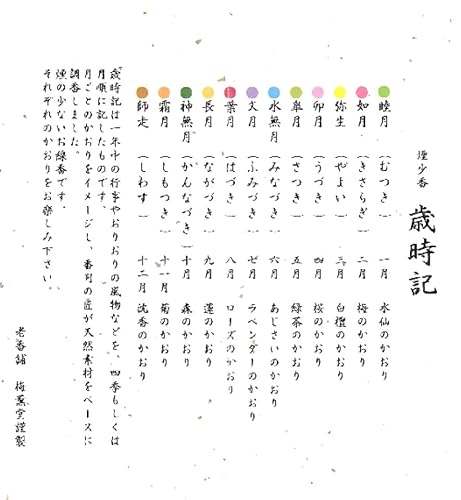 煙少香 歳時記
睦月（むつき） 一月 水仙のかおり
如月（きさらぎ） 二月 梅のかおり
弥生（やよい） 三月 白檀のかおり
卯月（うづき） 四月 桜のかおり
皐月（さつき） 五月 緑茶のかおり
水無月（みなづき） 六月 あじさいのかおり
文月（ふみづき） 七月 ラベンダーのかおり
葉月（はづき） 八月 ローズのかおり
長月（ながづき） 九月 蓮のかおり
神無月（かんなづき） 十月 森のかおり
霜月（しもつき） 十一月 菊のかおり
師走（しわす） 十二月 沈香のかおり
歳時記は一年中の行事やおりおりの風物などを、四季もしくは
月順に記したものです。
月ごとのかおりをイメージし、香司の匠が天然素材をベースに
調香しました。
煙の少ないお線香です。
それぞれのかおりをお楽しみ下さい。
老香舗 梅薫堂謹製